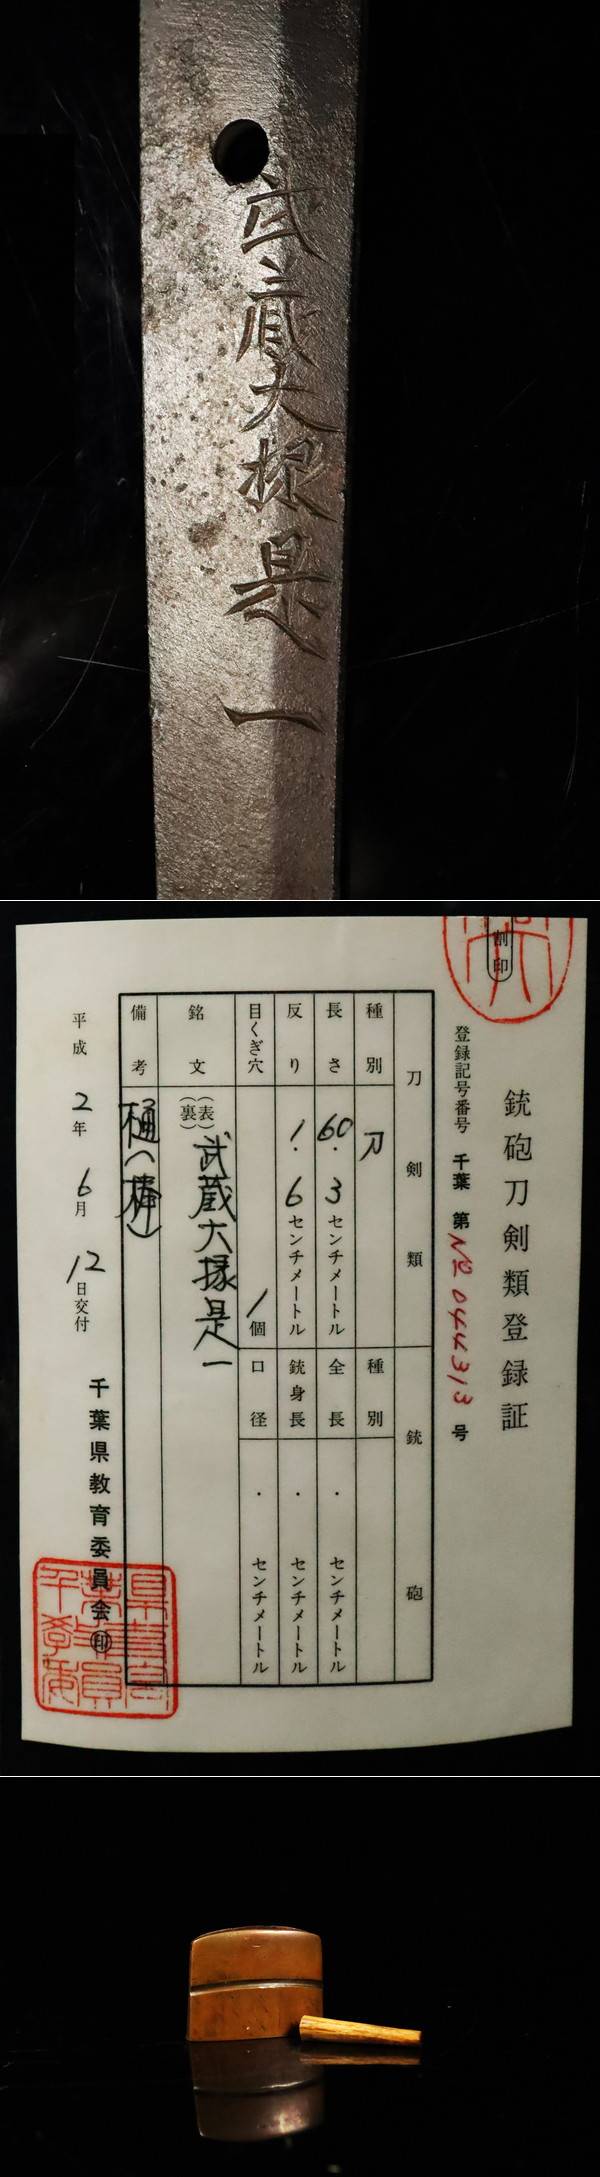 武蔵大掾是一
割印
銃砲刀剣類登録証
登録記号番号 千葉 第 No 044313 号
刀剣類
種別 刀
長さ 60.3 センチメートル
反り 1.6 センチメートル
目くぎ穴 1個
銘文 (表) 武蔵大掾是一
(裏)
備考 樋(棒)
銃砲
種別
全長 . センチメートル
銃身長 . センチメートル
口径 . センチメートル
平成 2年 6月 12日交付
千葉県教育委員会 印